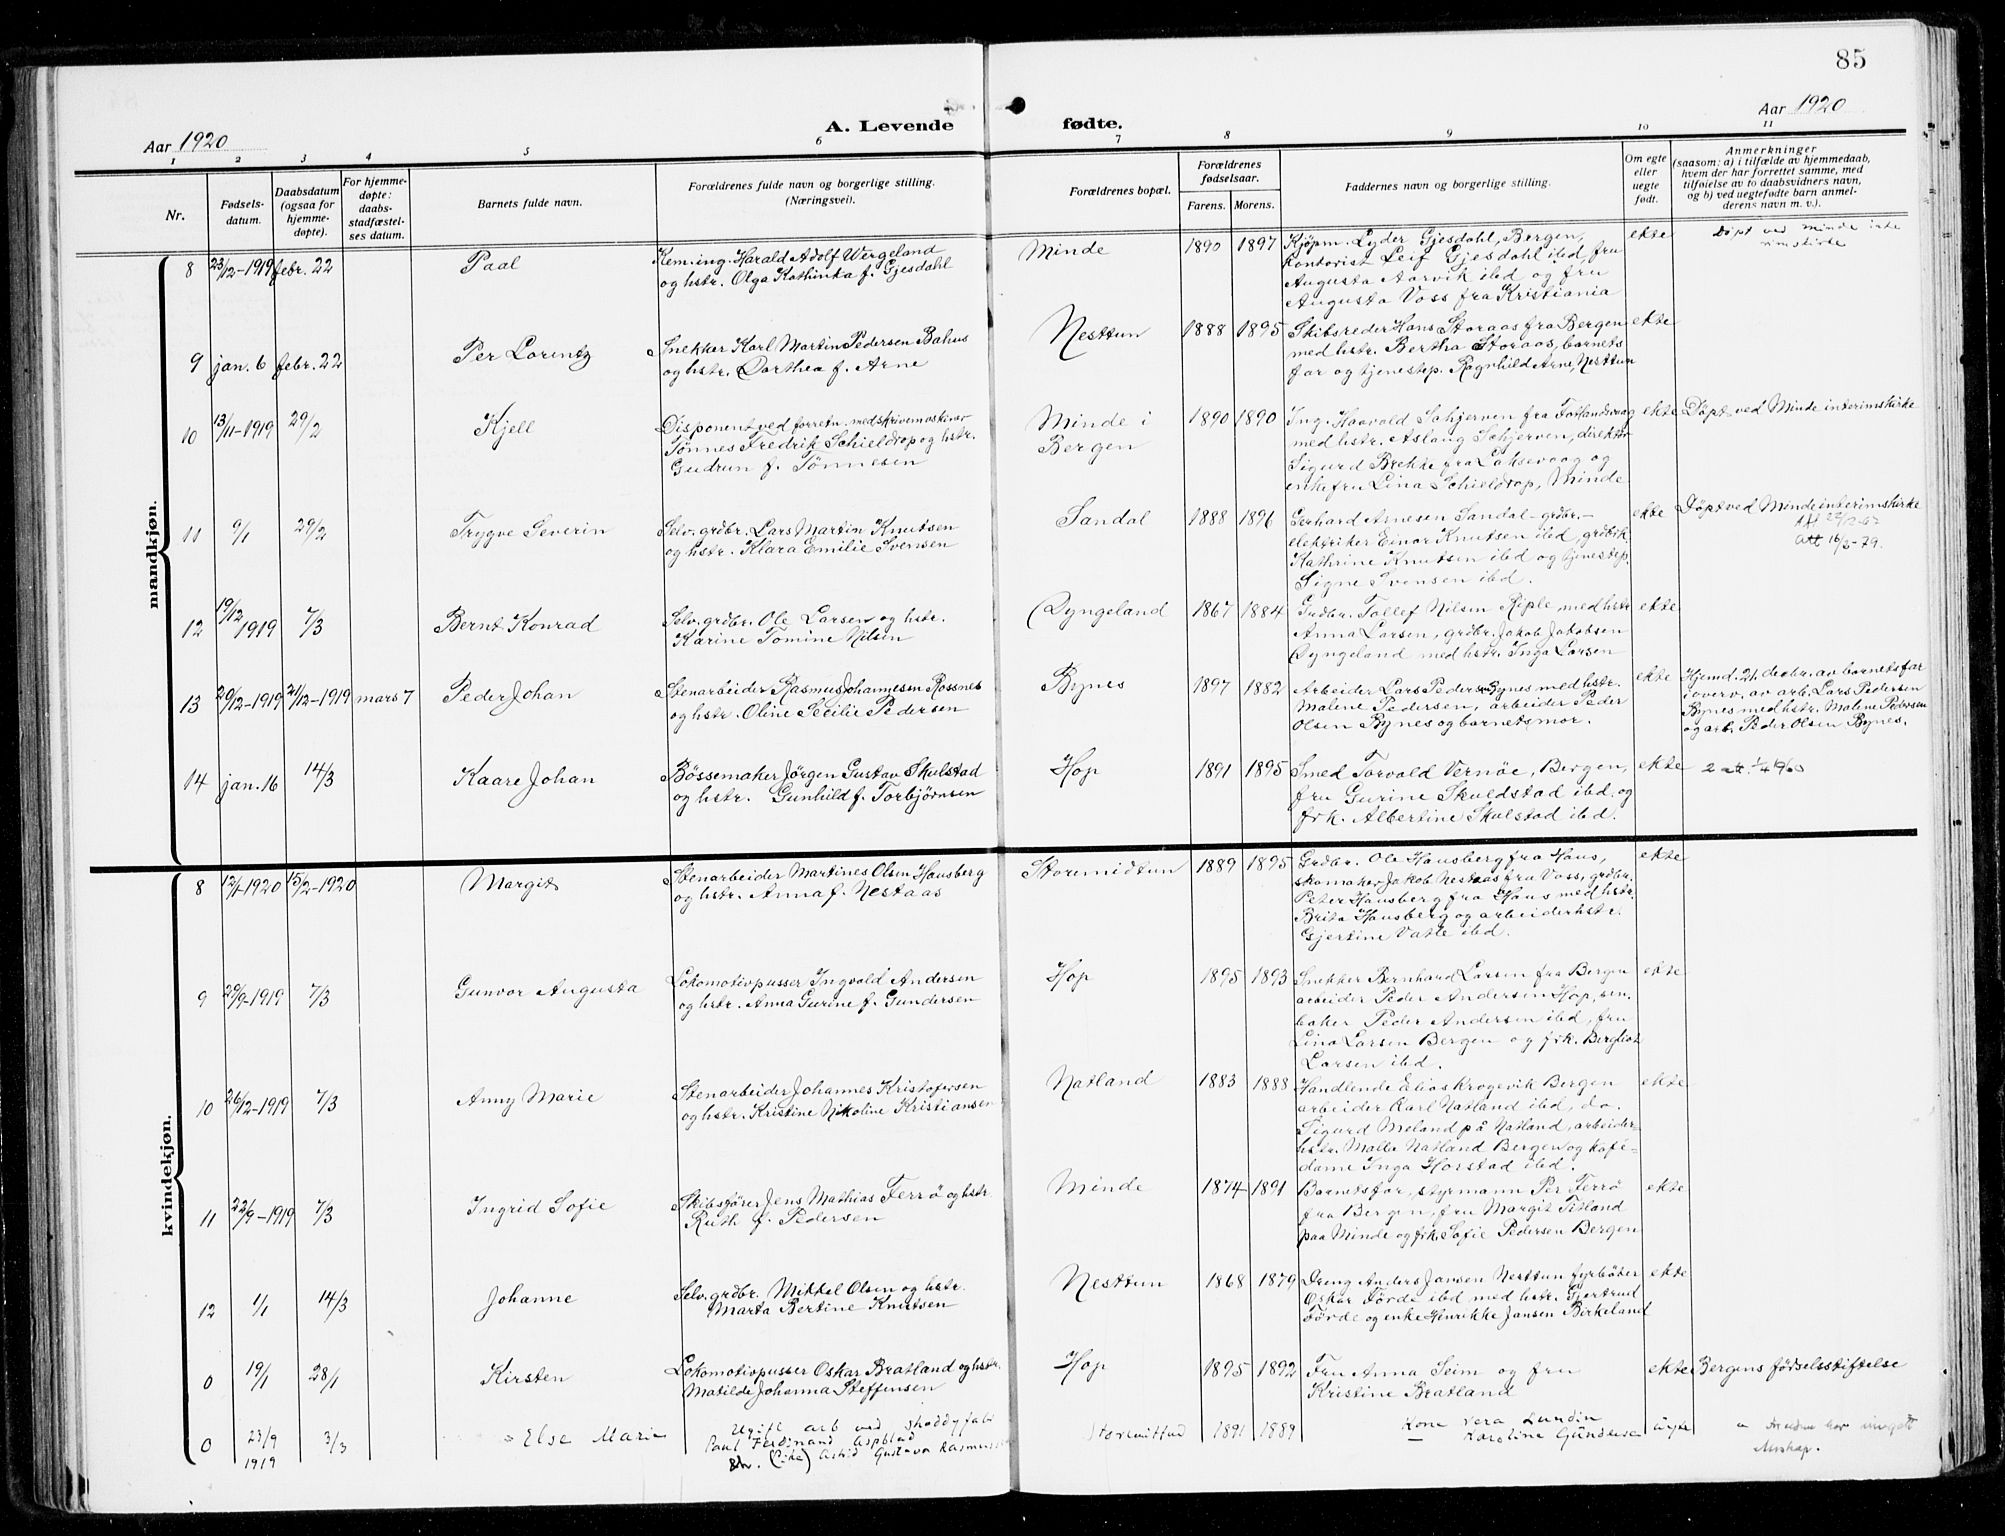 85
Aar 1920
A. Levende fødte.
Aar 1920
1 2 3 4 5 6 7 8 9 10 11
Nr.
Fødsels-
datum.
Daabsdatum
(ogsaa for
hjemme-
døpte).
For hjemme-
døpte:
daabs-
stadfæstel-
ses datum.
Barnets fulde navn.
Forældrenes fulde navn og borgerlige stilling.
(Næringsvei).
Forældrenes bopæl.
Forældrenes
fødselsaar.
Farens. Morens.
Faddernes navn og borgerlige stilling.
Om egte
eller
uegte
født.
Anmerkninger
(saasom: a) i tilfælde av hjemmedaab,
hvem der har forrettet samme, med
tilføielse av to daabsvidners navn,
og b) ved uegtefødte barn anmel-
derens navn m. v.).
mandkjøn.
8 23/12-1919 febr. 22 Paal
Kem.ing. Harald Adolf Wergeland
og hstr. Olga Kathinka f. Gjesdahl
Minde 1890 1897
Kjøpm. Lyder Gjesdahl, Bergen,
kontorist Leif Gjesdahl ibd, fru
Augusta Aarvik ibd og fru
Augusta Voss fra Kristiania
ekte
Døpt ved Minde inte
rimskirke
9 jan. 6 febr. 22 Per Lorentz
Snekker Karl Martin Pedersen Bahus
og hstr. Dorthea f. Arne
Nesttun 1888 1895
Skibsreder Hans Storaas fra Bergen
med hstr. Bertha Storaas, barnets
far og tjenestep. Ragnhild Arne, Nesttun
ekte
10 13/11-1919 29/2 Kjell
Disponent ved forretn. med skrivemaskiner
Tønnes Fredrik Schieldrop og hstr.
Gudrun f. Tønnesen
Minde i
Bergen
1890 1890
Ing. Haavald Schjerven fra Fotlandsvaag
med hstr. Aslaug Schjerven, direktør
Sigurd Brekke fra Laksevaag og
enkefru Lina Schieldrop, Minde
ekte
Døpt ved Minde interimskirke
11 9/1 29/2 Trygve Severin
Selv. grdbr. Lars Martin Knutsen
og hstr. Klara Emilie Svensen
Sandal 1888 1896
Gerhard Arnesen Sandal - grdbr. -
elektriker Einar Knutsen ibd, grdbrk.
Kathrine Knutsen ibd og tjenestep.
Signe Svensen ibd.
ekte
Døpt ved Minde interimskirke
Att 16/3-79.
12 19/12 1919 7/3 Bernt Konrad
Selv. grdbr. Ole Larsen og hstr.
Karine Tomine Nilsen
Dyngeland 1867 1884
Grdbr. Tollef Nilsen Riple med hstr
Anna Larsen, grdbr. Jakob Jakobsen
Dyngeland med hstr. Inga Larsen
ekte
13 20/12-1919 21/12-1919 mars 7 Peder Johan
Stenarbeider Rasmus Johannesen Rossnes
og hstr. Oline Secilie Pedersen
Bynes 1897 1882
Arbeider Lars Pedersen Bynes med hstr.
Malene Pedersen, arbeider Peder
Olsen Bynes og barnets mor.
ekte
Hjemd. 21. decbr. av barnets far
i overv. av arb. Lars Pedersen
Bynes med hstr. Malene Pedersen
og arb. Peder Olsen Bynes.
14 jan. 16 14/3 Kaare Johan
Bössemaker Jørgen Gustav Skulstad
og hstr. Gunhild f. Torbjørnsen
Hop 1891 1895
Smed Torvald Vernöe, Bergen,
fru Gurine Skuldstad ibd. og
frk. Albertine Skulstad ibd.
ekte
2 att. 1/4 1960
kvindekjøn.
8 12/1-1920 15/2-1920 Margit
Stenarbeider Martines Olsen Hausberg
og hstr. Anna f. Nestaas
Storemidtun 1889 1895
Grdbr. Ole Hausberg fra Haus,
skomaker Jakob Nestaas fra Voss, grdbr.
Peter Hausberg fra Haus med hstr.
Brita Hausberg og arbeiderhstr.
Gjertine Vatle ibd.
ekte
9 29/9-1919 7/3 Gunvor Augusta
Lokomotivpusser Ingvald Andersen
og hstr. Anna Gurine f. Gundersen
Hop 1895 1893
Snekker Bernhard Larsen fra Bergen
arbeider Peder Andersen Hop, sen.
baker Peder Andersen ibd, fru
Lina Larsen Bergen og frk. Bergliot
Larsen ibd.
ekte
10 26/12-1919 7/3 Anny Marie
Stenarbeider Johannes Kristofersen
og hstr. Kristine Nikoline Kristiansen
Natland 1883 1888
Handlende Elias Krogevik Bergen
arbeider Karl Natland ibd, do.
Sigurd Meland på Natland, arbeider-
hstr. Malle Natland Bergen og kafé-
dame Inga Horstad ibd.
ekte
11 22/9-1919 7/3 Ingrid Sofie
Skibsfører Jens Mathias Ferrö og hstr.
Ruth f. Pedersen
Minde 1874 1891
Barnets far, styrmann Per Ferrö
fra Bergen, fru Margit Titland
paa Minde og frk. Sofie Pedersen Bergen
ekte
12 1/1 14/3 Johanne
Selv. grdbr. Mikkel Olsen og hstr.
Marta Bertine Knutsen
Nesttun 1868 1879
Dreng Anders Jansen Nesttun fyrbøter
Oskar Førde ibd med hstr. Gjertrud
Førde og enke Henrikke Jansen Birkeland
ekte
0 19/1 28/1 Kirsten
Lokomotivpusser Oskar Bratland og hstr.
Matilde Johanna Steffensen
Hop 1895 1892
Fru Anna Seim og fru
Kristine Bratland
ekte
Bergens fødselsstiftelse
0 23/9 1919 3/3 Else Marie
Ugift arb ved shoddyfabr
Paul Ferdinand Aspblad
(Pike) Astrid Gustava Rasmussen
Storemittud 1891 1889
Kone Vera Lundin
Karoline Gundersen
uegte